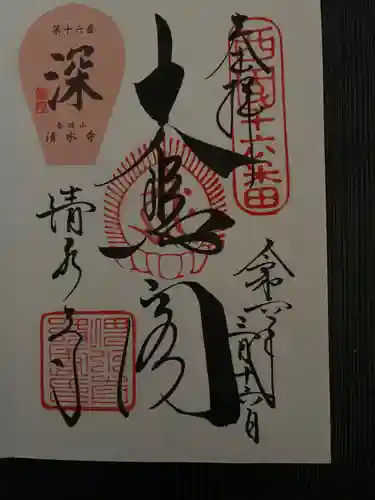 奉拝
西国十六番
大悲閣
令和六年
三月十六日
清水寺
第十六番
深
音羽山
清水寺